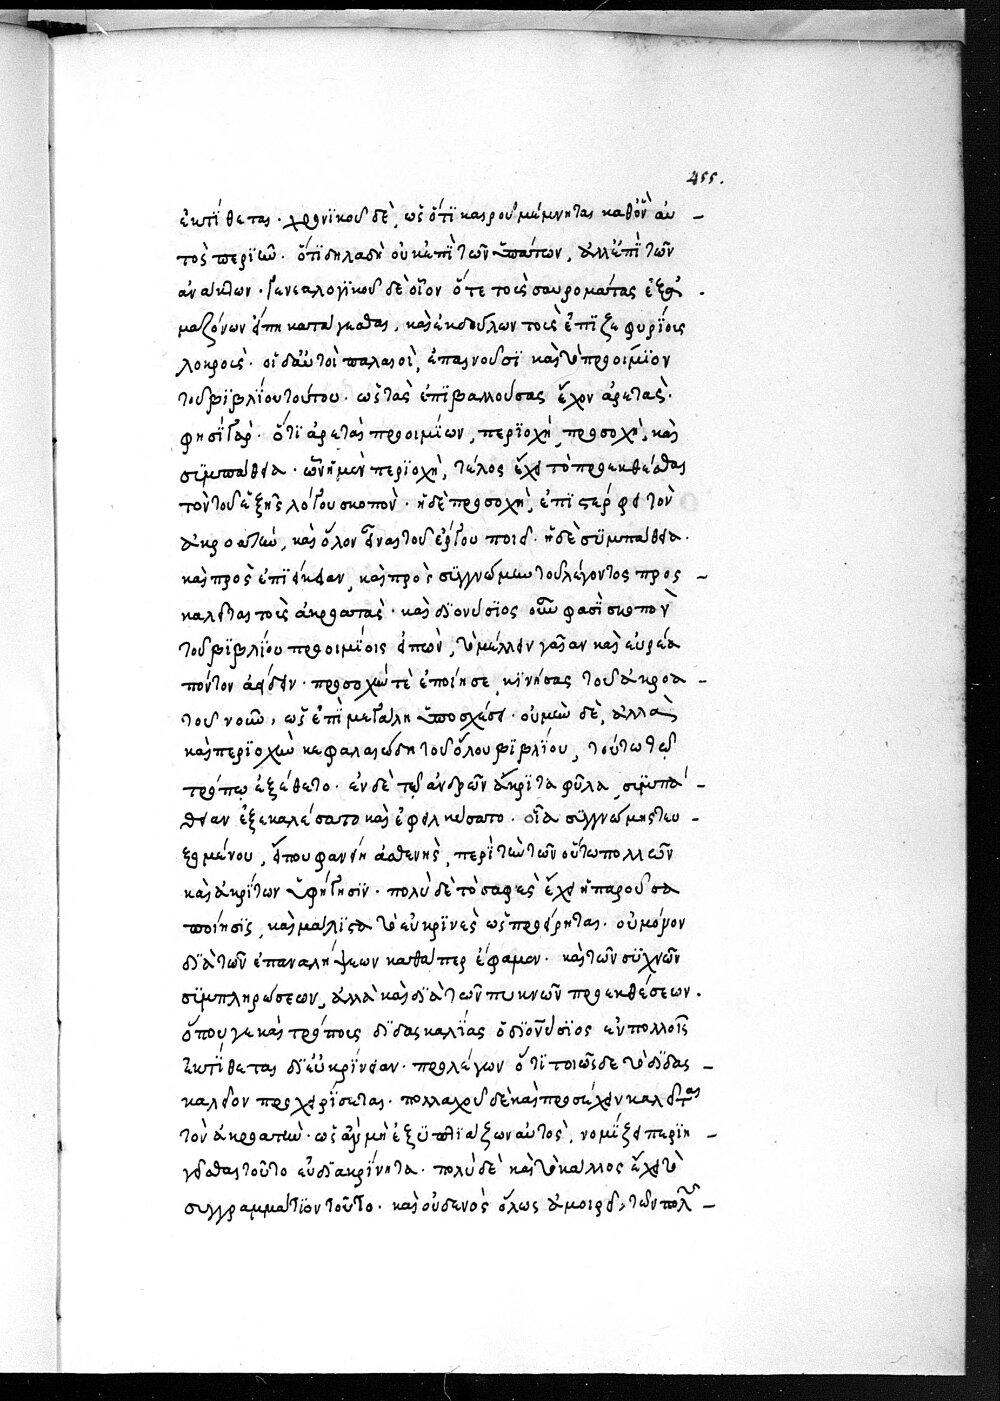 455.
ἐκτίθεται· χρονικοῦ δὲ, ὡς ὅτι καιροῦ μέμνηται καθ' ὃν αὐ –
τὸς περιῄει. ὅτι δηλαδὴ οὐκ ἐπὶ τῶν ὑπάτων, ἀλλ' ἐπὶ τῶν
ἀνάκτων· γενεαλογικοῦ δὲ οἷον ὅτε τοὺς σαυρομάτας ἐξ ἀ
μαζόνων εἴπῃ κατάγεσθαι, καὶ ἐκ δούλων τοὺς ἐπιζεφυρίους
λοκρούς· οἱ δ' αὐτοὶ παλαιοὶ, ἐπαινοῦσι καὶ τὸ προοίμιον
τοῦ βιβλίου τούτου· ὡς τὰς ἐπιβαλλούσας ἔχον ἀρετάς·
φησὶ γὰρ· ὅτι ἀρεταὶ προοιμίων, περιοχὴ, προσοχὴ, καὶ
συμπάθεια· ὧν ἡ μὲν περιοχὴ, τέλος ἔχει τὸ προεκθέσθαι
τὸν τοῦ ἑξῆς λόγου σκοπὸν· ἡ δὲ προσοχὴ, ἐπιστρέφει τὸν
ἀκροατὴν, καὶ ὅλον εἶναι τοῦ ἔργου ποιεῖ· ἡ δὲ συμπάθεια·
καὶ πρὸς ἐπιείκειαν, καὶ πρὸς συγγνώμην τοῦ λέγοντος προς –
καλεῖται τοὺς ἀκροατάς· καὶ διονύσιος οὖν φασὶ σκοπὸν
τοῦ βιβλίου προοιμίοις εἰπὼν, τὸ μέλλειν γαῖαν καὶ εὐρέα
πόντον ἀείδειν· προσοχήν τε ἐποίησε, κινήσας τοῦ ἀκροα –
τοῦ νοῦν, ὡς ἐπὶ μεγάλῃ ὑποσχέσει· οὐ μὴν δὲ, ἀλλὰ
καὶ περιοχὴν κεφαλαιώδη τοῦ ὅλου βιβλίου, τούτῳ τῷ
τρόπῳ ἐξέθετο· ἐν δὲ τῷ ἀνδρῶν ἄκριτα φῦλα, συμπά –
θειαν ἐξεκαλέσατο καὶ ἐφειλκύσατο· οἷα συγγνώμης τευ –
ξομένου, εἴπου φανείη ἀσθενὴς, περὶ τὴν τῶν οὕτω πολλῶν
καὶ ἀκρίτων ὑφήγησιν· πολὺ δὲ τὸ σαφὲς ἔχει ἡ παροῦσα
ποίησις, καὶ μάλιστα τὸ εὐκρινὲς ὡς προείρηται· οὐ μόνον
διὰ τῶν ἐπαναλήψεων καθάπερ ἔφαμεν· καὶ τῶν συχνῶν
συμπληρώσεων, ἀλλὰ καὶ διὰ τῶν πυκνῶν προεκθέσεων.
ὅπου γε καὶ τρόπους διδασκαλίας ὁ διονύσιος ἐν πολλοῖς
ἐκτίθεται δι' εὐκρίνειαν· προλέγων ὅτι τοιῶσδε τὸ διδας –
καλεῖον προχειρίσεται· πολλαχοῦ δὲ καὶ προσέχειν καλεῖται
τὸν ἀκροατὴν· ὡς ἂν μὴ ἐξυπτιάζων αὐτὸς, νομίζει περιη –
γεῖσθαι τοῦτο εὐδιακρίνητα· πολὺ δὲ καὶ τὸ κάλλος ἔχει τὸ
συγγραμμάτιον τοῦτο· καὶ οὐδενὸς ὅλως ἀμοιρεῖ, τῶν πολ –